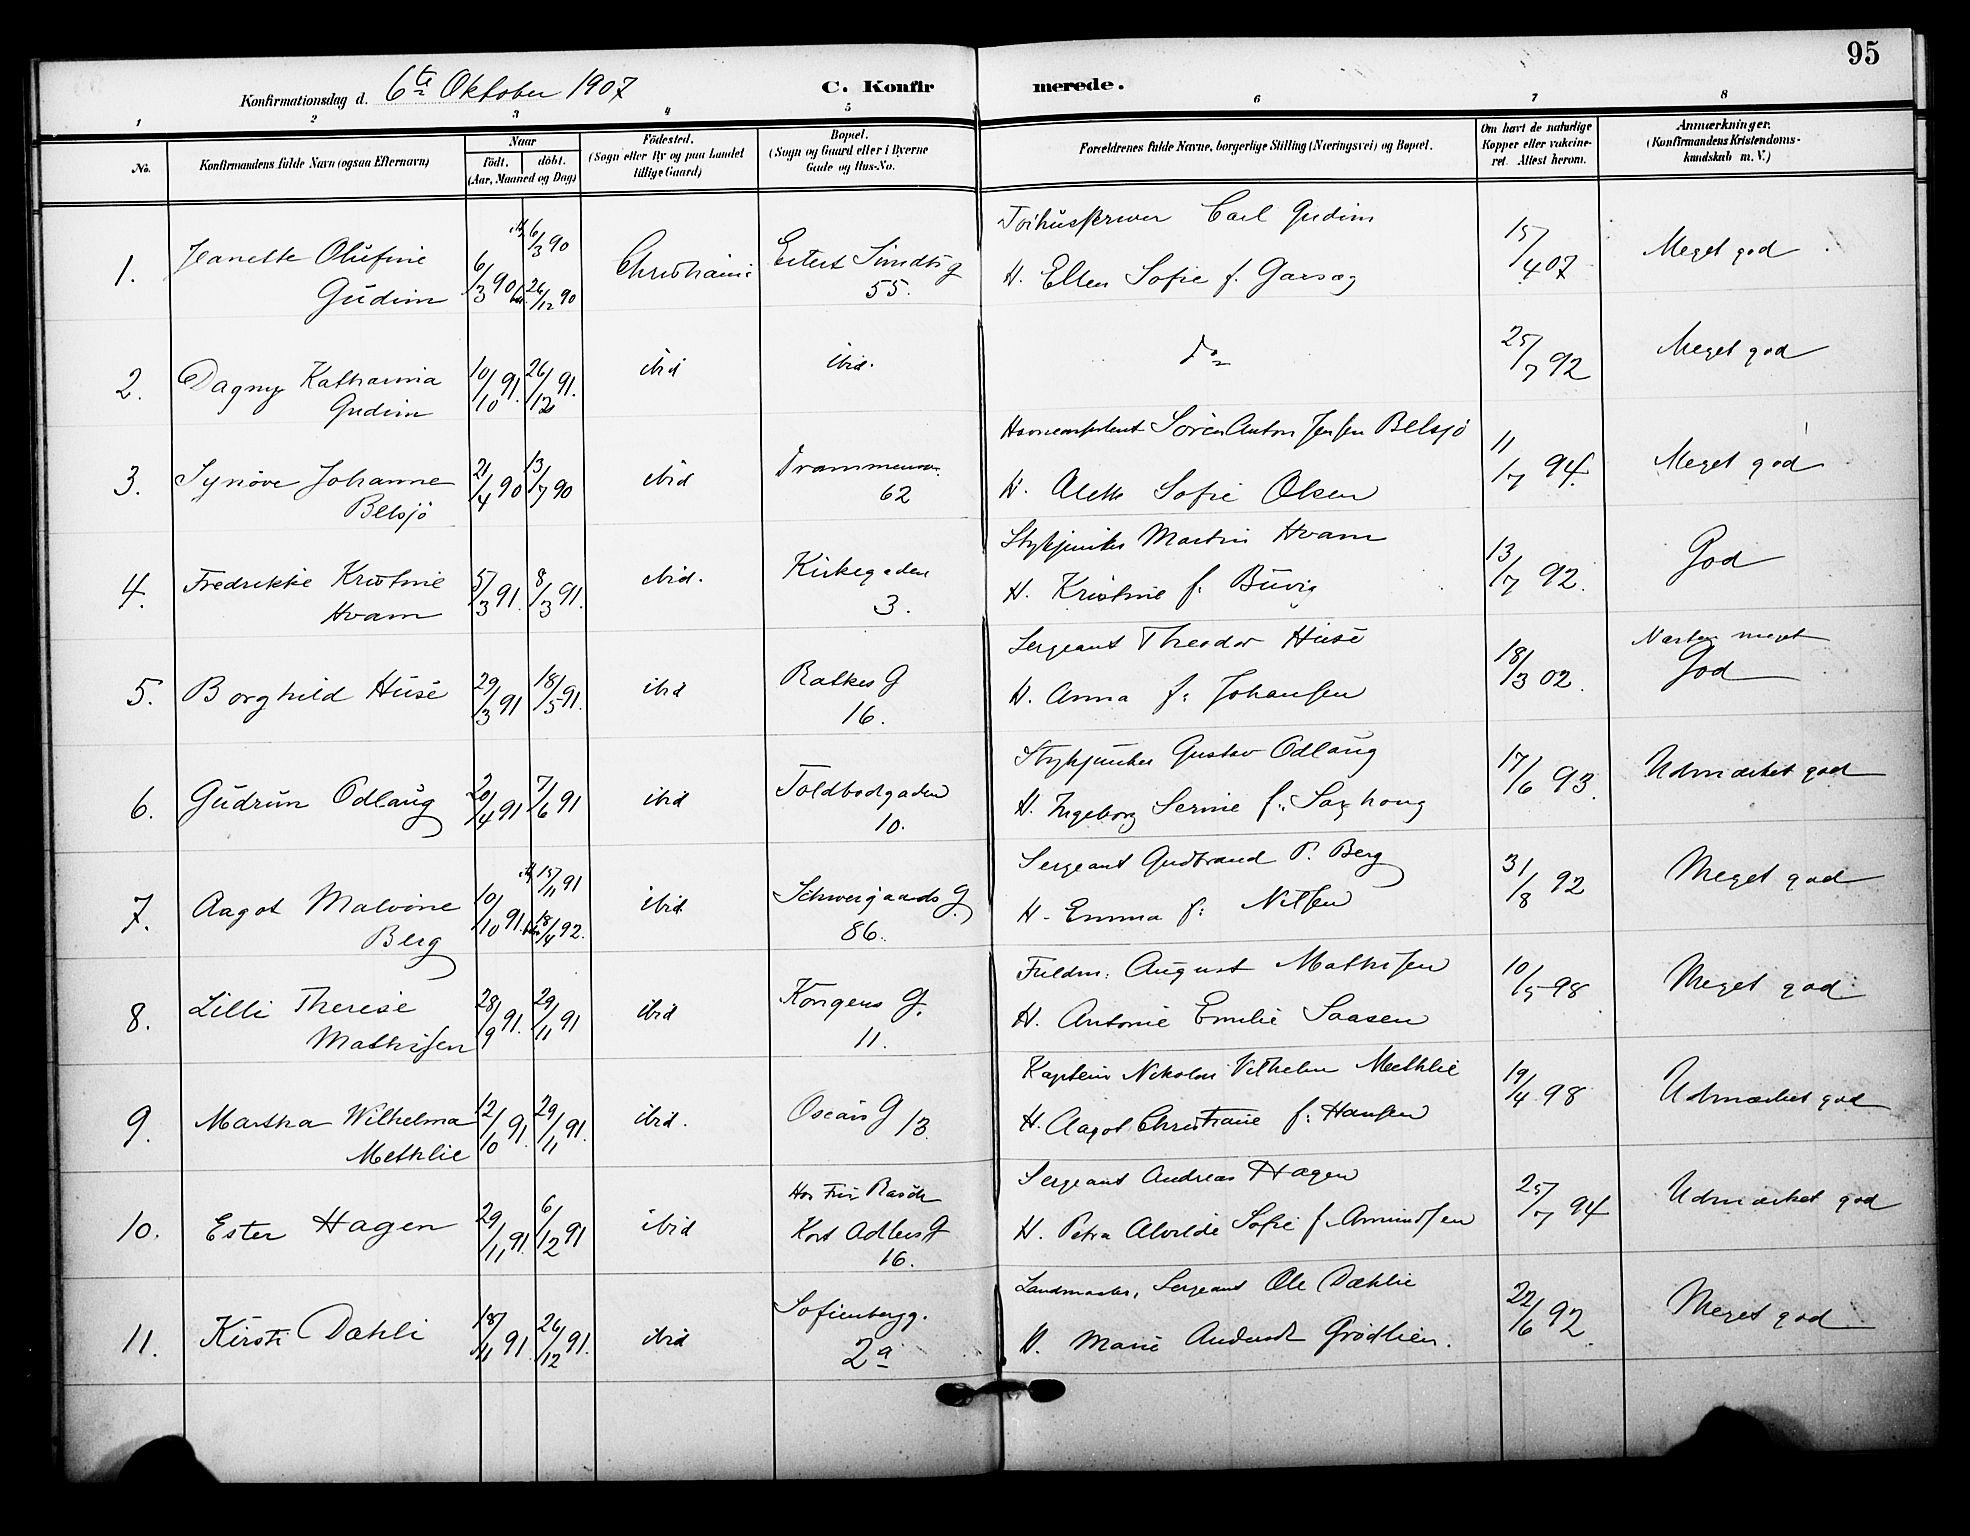 95
Konfirmationsdag d. 6te Oktober 1907 C. Konfirmerede.
1 2 3 4 5 6 7 8
No.
Konfirmandens fulde Navn (ogsaa Efternavn)
Naar
født. døbt.
(Aar, Maaned og Dag)
Födested.
(Sogn eller By og paa Landet
tillige Gaard)
Bopæl.
(Sogn og Gaard eller i Byerne
Gade og Hus-No.
Forældrenes fulde Navne, borgerlige Stilling (Næringsvei) og Bopæl.
Om havt de naturlige
Kopper eller vakcine-
ret. Attest herom.
Anmærkninger.
(Konfirmandens Kristendoms-
kundskab m. V.)
1. Jeanette Olufine
Gudim
6/3 90 6/3 90
26/12 90
Christiania
Eilert Sundts g
55.
Carl Gudim
H. Ellen Sofie f.
15/4 07
Meget god
2. Dagny Katharina
Gudim
10/10 91. 26/12 91.
ibid
ibid.
do
25/7 92
Meget god
3. Synøve Johanne
Belsjö
21/4 90 13/7 90
ibid
62
Sören Anton Jensen Belsjö
H. Alette Sofie Olsen
11/7 94.
Meget god
4. Fredrikke Kristine
Hvam
5/3 91. 8/3 91.
ibid.
Kirkegaden
3.
Stykjunker Martin Hvam
H. Kristine f. Buvig
13/7 92.
God
5. Borghild Huse
29/3 91 18/5 91.
ibid
Ratkes G
16.
Sergeant Theodor Huse
H. Anna f: Johansen
18/3 02.
Næsten meget
God
6. Gudrun Odlaug
20/4 91 7/6 91
ibid
Toldbodgaden
10.
Stykjunker Gustav Odlaug
H. Ingeborg Serine f.
17/6 93.
Udmærket god
7. Aagot Malvine
Berg
10/10 91. 15/11 91
18/4 92.
ibid
Schweigaards G.
86.
Sergeant Gudbrand P. Berg
H. Emma f: Nilsen
31/8 92
Meget god
8. Lilli Therese
Mathisen
28/9 91. 29/11 91
ibid
Kongens G.
11.
Fuldm. August Mathisen
H. Antonie Emilie Saasen
10/5 98
Meget god
9. Martha Wilhelma
Methlie
12/10 91. 29/11 91.
ibid.
Oscars G 13.
Kaptein Nikolai Vilhelm Methlie
H. Aagot Christiane f: Hansen
19/4 98
Udmærket god
10. Ester Hagen
29/11 91 6/12 91
ibid
Hos Fru Rasch
Kort Adlers G
16.
Sergeant Andreas Hagen
H. Petra Alvilde Sofie f. Amundsen
25/7 94
Udmærket god
11. Kirsti Dæhli
18/11 91 26/12 91.
ibid
Sofienbergg.
2a
Sergeant Ole Dæhlie
H. Marie Grødtlien.
22/6 92
Meget god